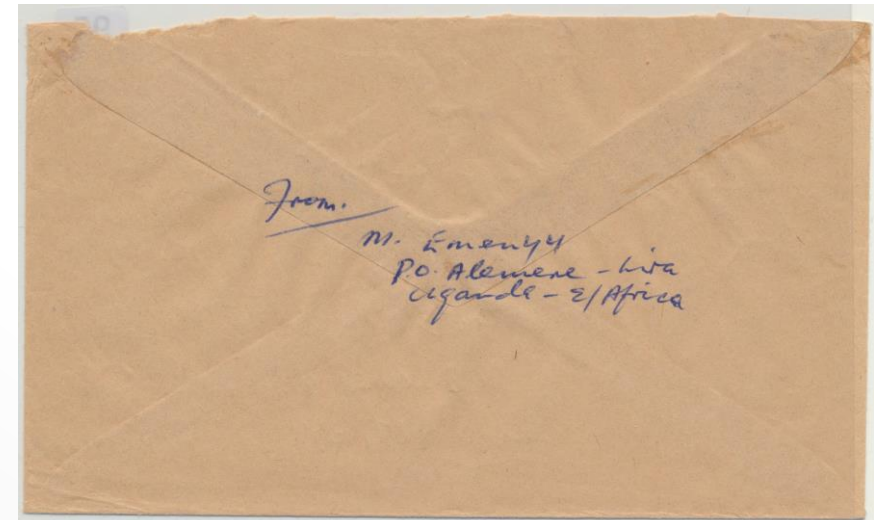 From.
M. Emenyy
P.O. Alemere - Lira
Uganda - E/Africa